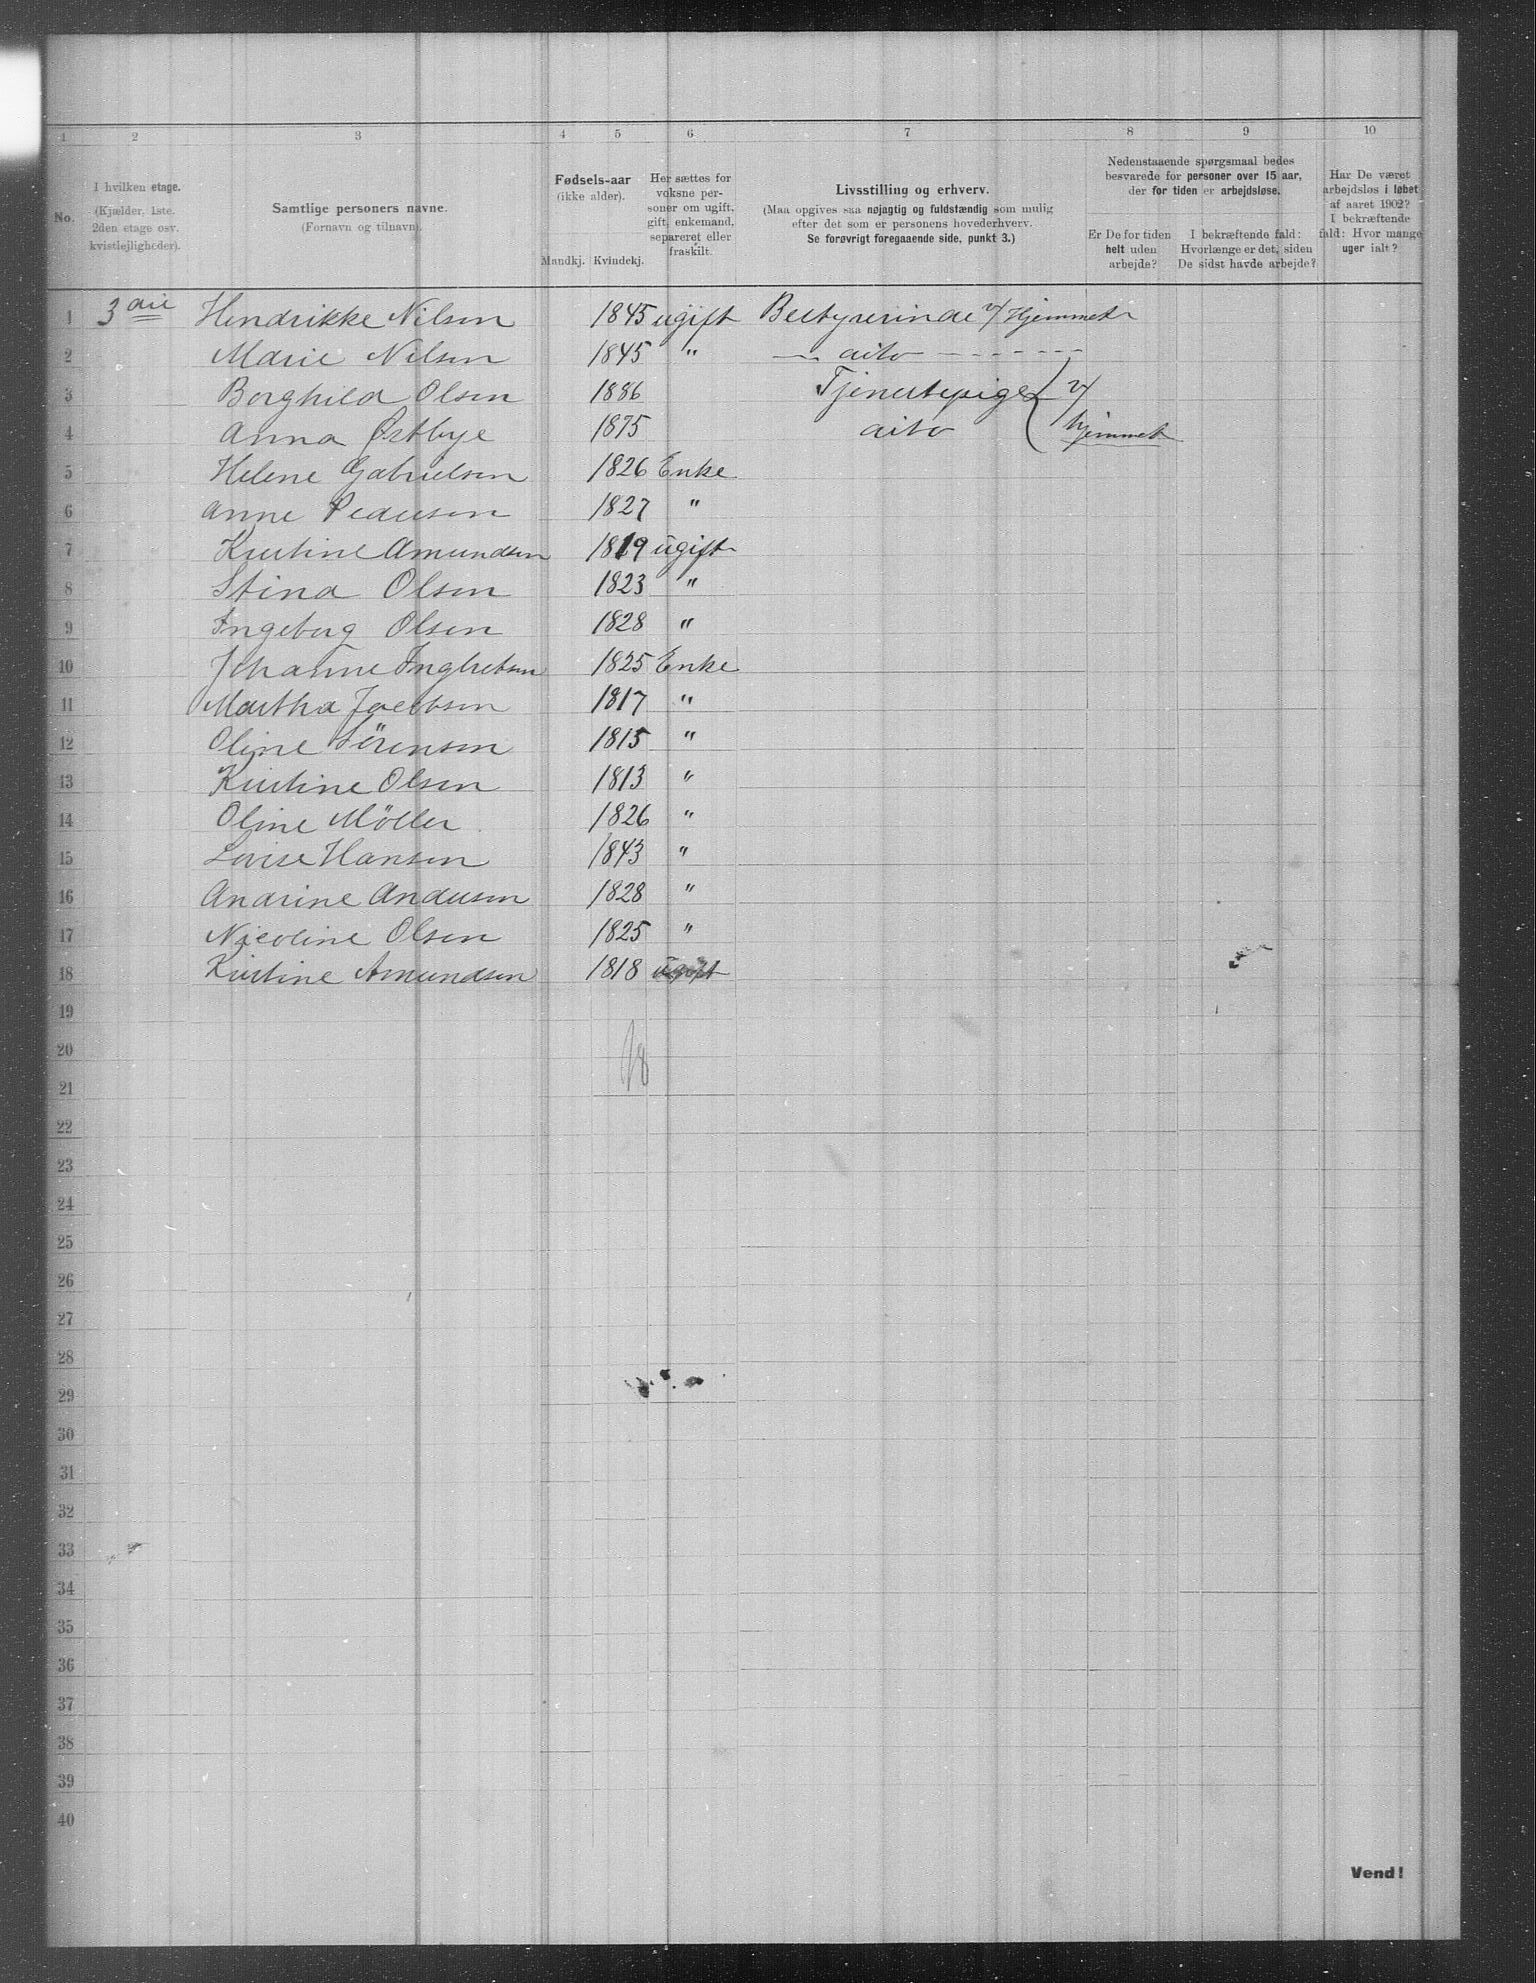 1 2 3 4 5 6 7 8 9 10
No.
I hvilken etage.
(Kjælder, 1ste.
2den etage osv.
kvistlejligheder).
Samtlige personers navne.
(Fornavn og tilnavn).
Fødsels-aar
(ikke alder).
Mandkj. Kvindekj.
Her sættes for
voksne per-
soner om ugift,
gift, enkemand,
separeret eller
fraskilt.
Livsstilling og erhverv.
(Maa opgives saa nøjagtig og fuldstændig som mulig
efter det som er personens hovederhverv.
Se forøvrigt foregaaende side, punkt 3.)
Nedenstaaende spørgsmaal bedes
besvarede for personer over 15 aar,
der for tiden er arbejdsløse.
Er De for tiden
helt uden
arbejde?
I bekræftende fald:
Hvorlænge er det, siden
De sidst havde arbejde?
Har De været
arbejdsløs i løbet
af aaret 1902?
I bekræftende
fald: Hvor mange
uger ialt?
1 3die Hendrikke Nilsen 1845 ugift Bestyrerinde v/ Hjemmet
2 Marie Nilsen 1845 " — dito - - - - - - -
3 Borghild Olsen 1886 Tjenestepige v/
4 Anna Østbye 1875 dito hjemmet
5 Helene Gabrielsen 1826 Enke
6 Anne Pedersen 1827 "
7 Kristine Amundsen 1819 ugift
8 Stina Olsen 1823 "
9 Ingeborg Olsen 1828 "
10 Johanne Ingbretsen 1825 Enke
11 Martha Jacobsen 1817 "
12 Oline Sörensen 1815 "
13 Kristine Olsen 1813 "
14 Oline Möller 1826 "
15 Lovise Hansen 1843 "
16 Andrine Andersen 1828 "
17 Nicoline Olsen 1825 "
18 Kristine Amundsen 1818 ugift
19
20
18
21
22
23
24
25
26
27
28
29
30
31
32
33
34
35
36
37
38
39
40
Vend!